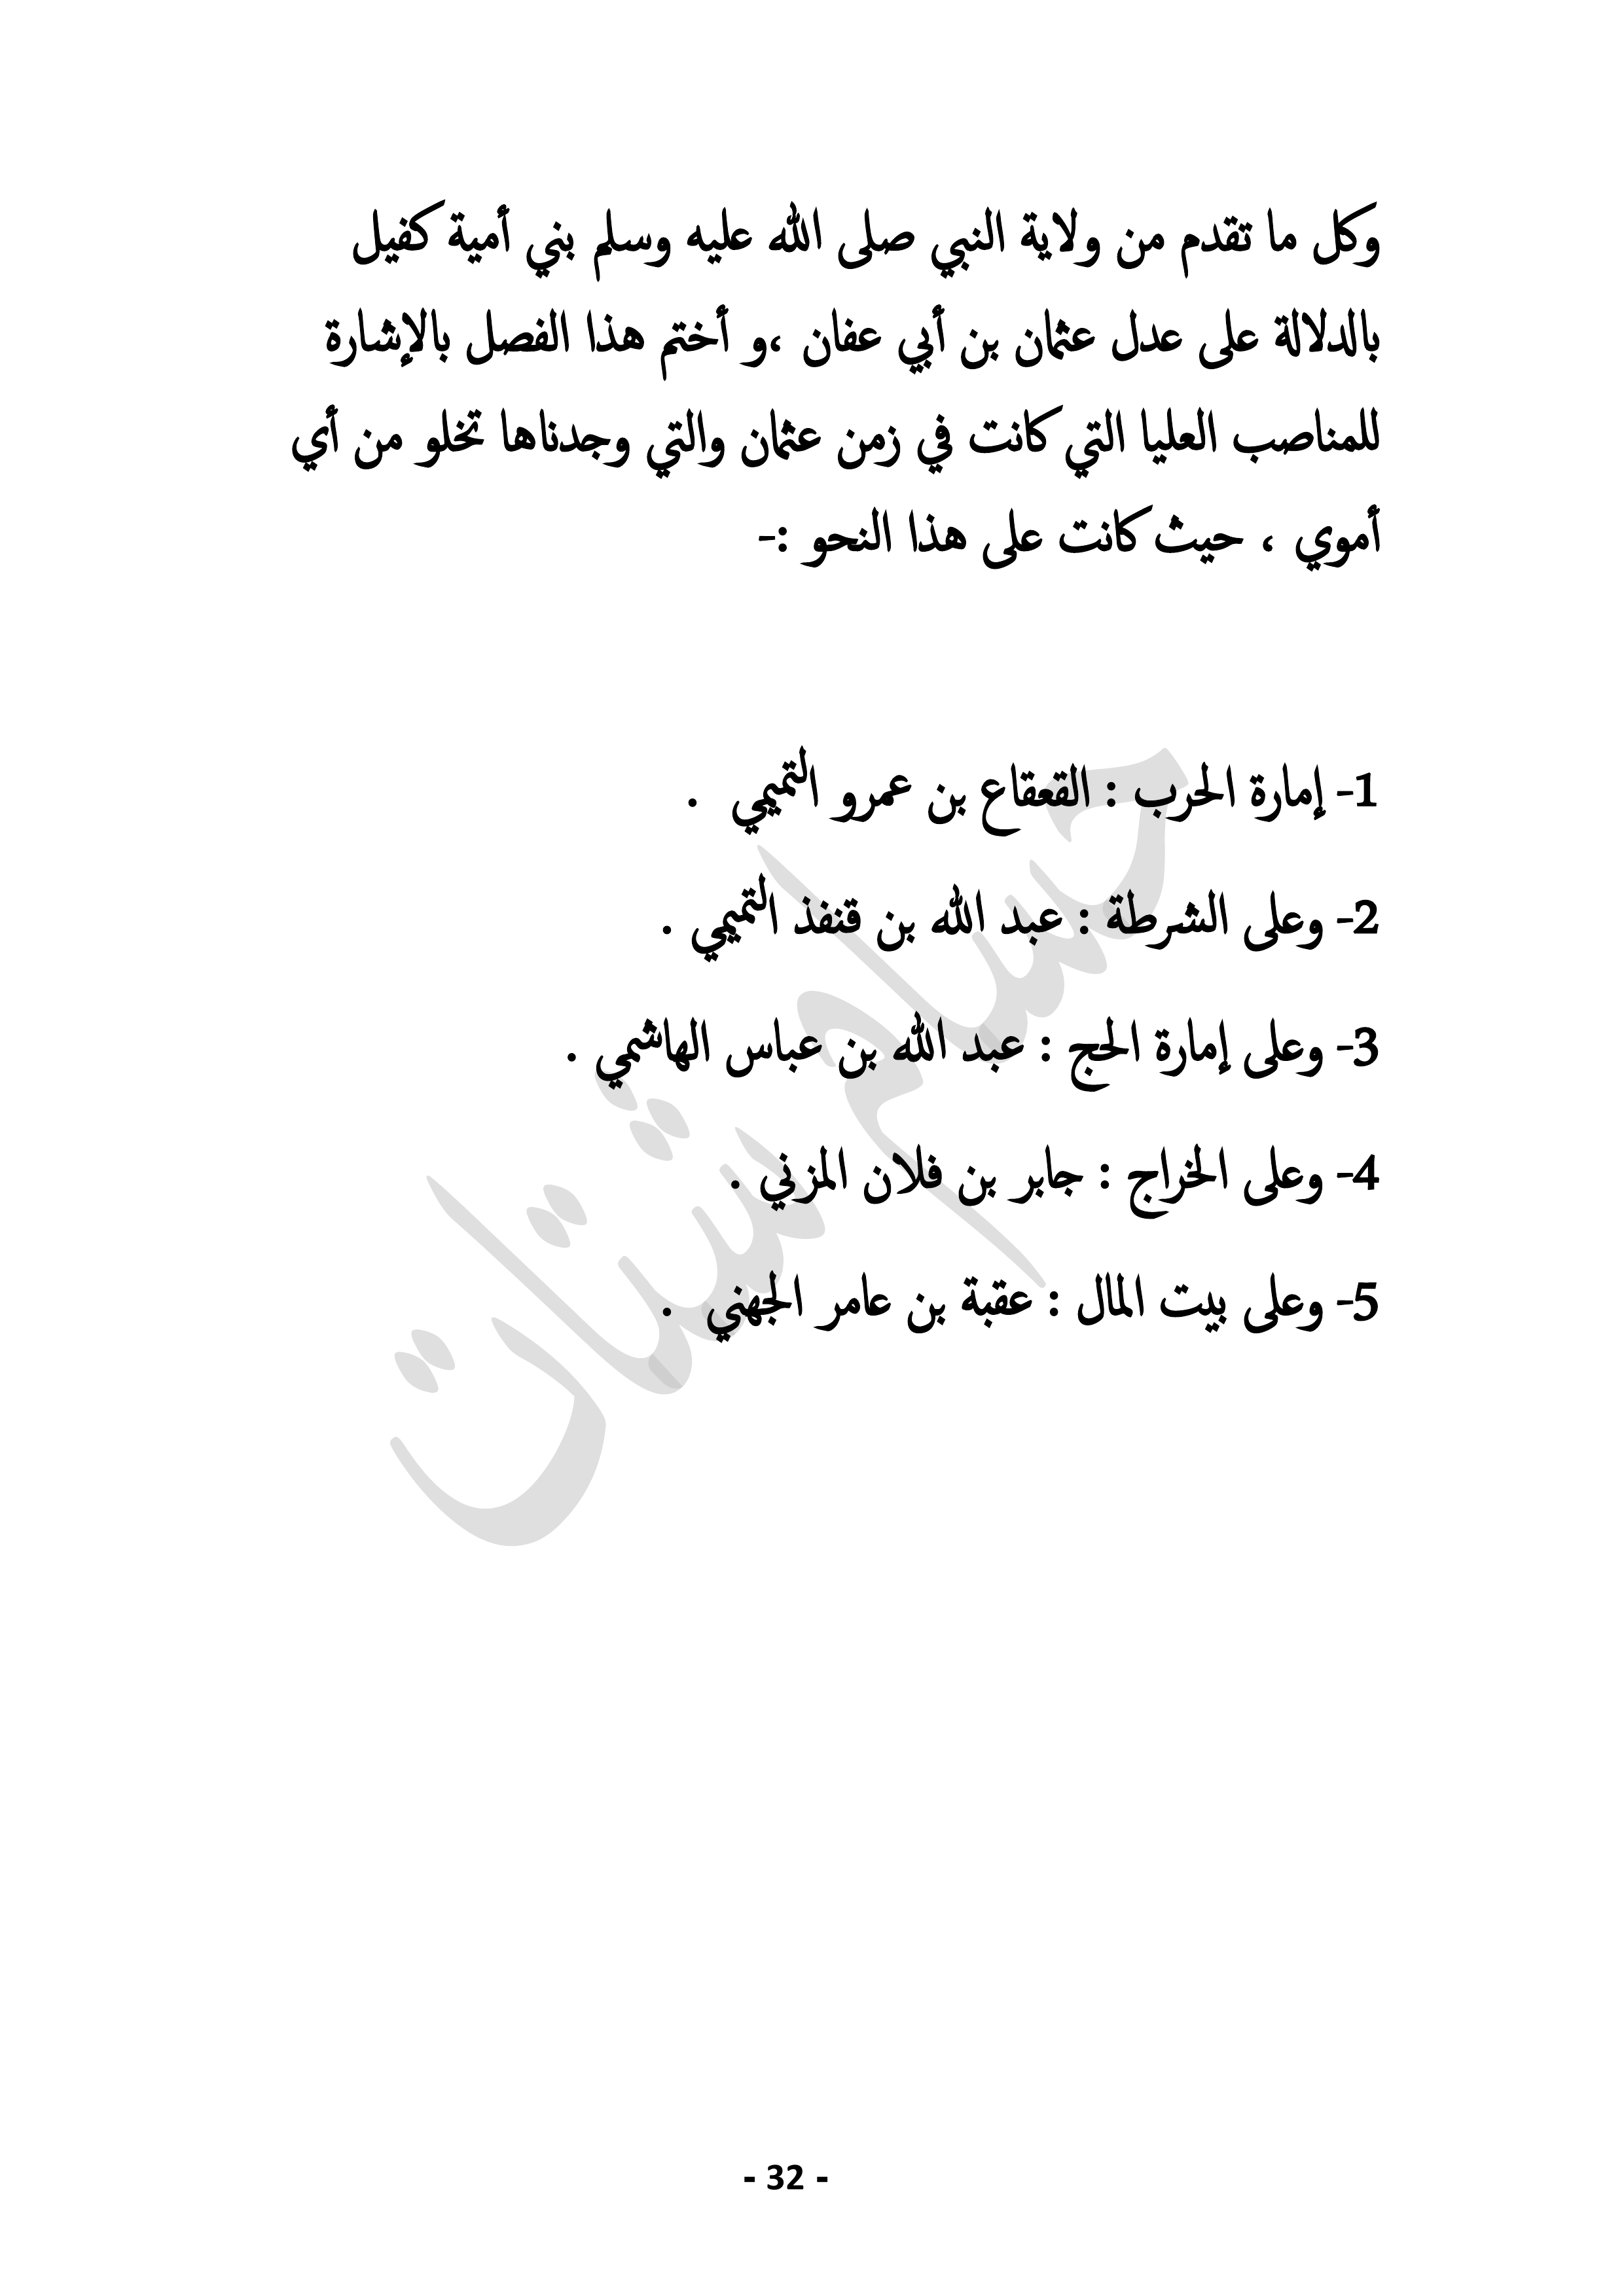 وكل ما تقدم من ولاية النبي صلى الله عليه وسلم بني أمية كفيل
بالدلالة على عدل عثمان بن أبي عفان ،و أختم هذا الفصل بالإشارة
للمناصب العليا التي كانت في زمن عثمان والتي وجدناها تخلو من أي
أموي ، حيث كانت على هذا النحو :-
1- إمارة الحرب : القعقاع بن عمرو التميمي .
2- وعلى الشرطة : عبد الله بن قنفذ التميمي .
3- وعلى إمارة الحج : عبد الله بن عباس الهاشمي .
4- وعلى الخراج : جابر بن فلان المزني .
5- وعلى بيت المال : عقبة بن عامر الجهني .
حسام شتات
- 32 -